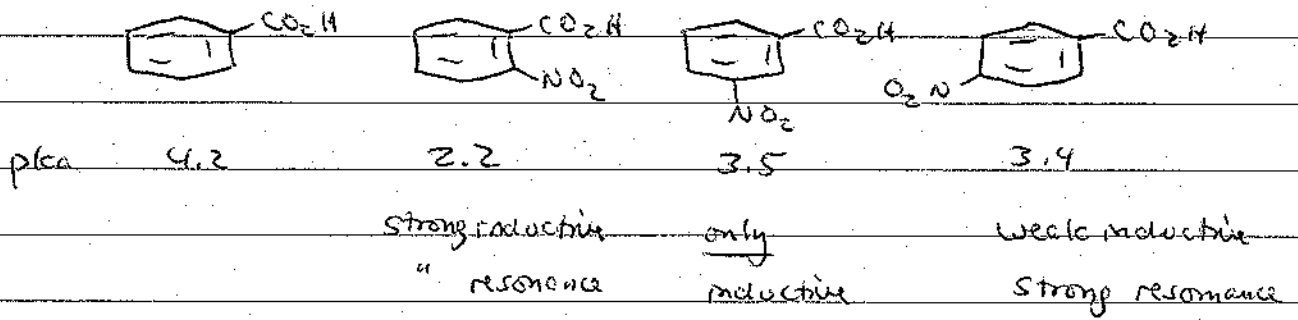 CO₂H CO₂H CO₂H CO₂H
NO₂ NO₂ O₂N
pka 4.2 2.2 3.5 3.4
strong inductive only weak inductive
" resonance inductive strong resonance